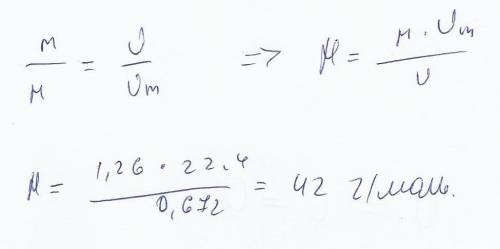 m/M = V/Vm => M = m · Vm / V
M = 1,26 · 22.4 / 0,672 = 42 г/моль.